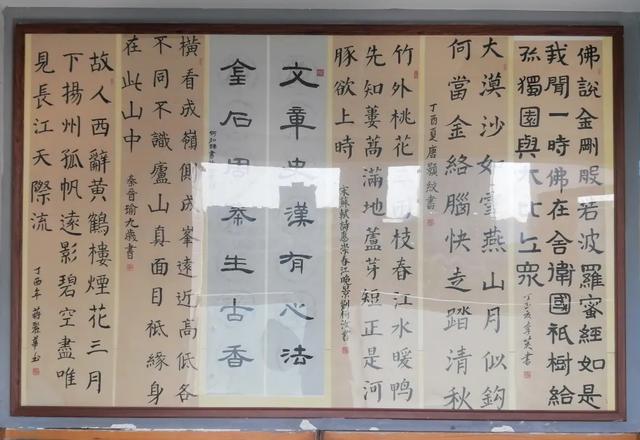 佛說金剛般若波羅蜜經如是
我聞一時佛在舍衛國祇樹給
孤獨園與大比丘眾
大漠沙如雪燕山月似鈎
何當金絡腦快走踏清秋
丁酉夏唐顥紋書
竹外桃花三兩枝春江水暖鴨
先知蔞蒿滿地蘆芽短正是河
豚欲上時
宋蘇軾詩惠崇春江晚景劉柯汝書
文章史漢有心法
金石周秦生古香
橫看成嶺側成峯遠近高低各
不同不識廬山真面目祇緣身
在此山中
秦晉瑜九歲書
故人西辭黃鶴樓煙花三月
下揚州孤帆遠影碧空盡唯
見長江天際流
丁酉年